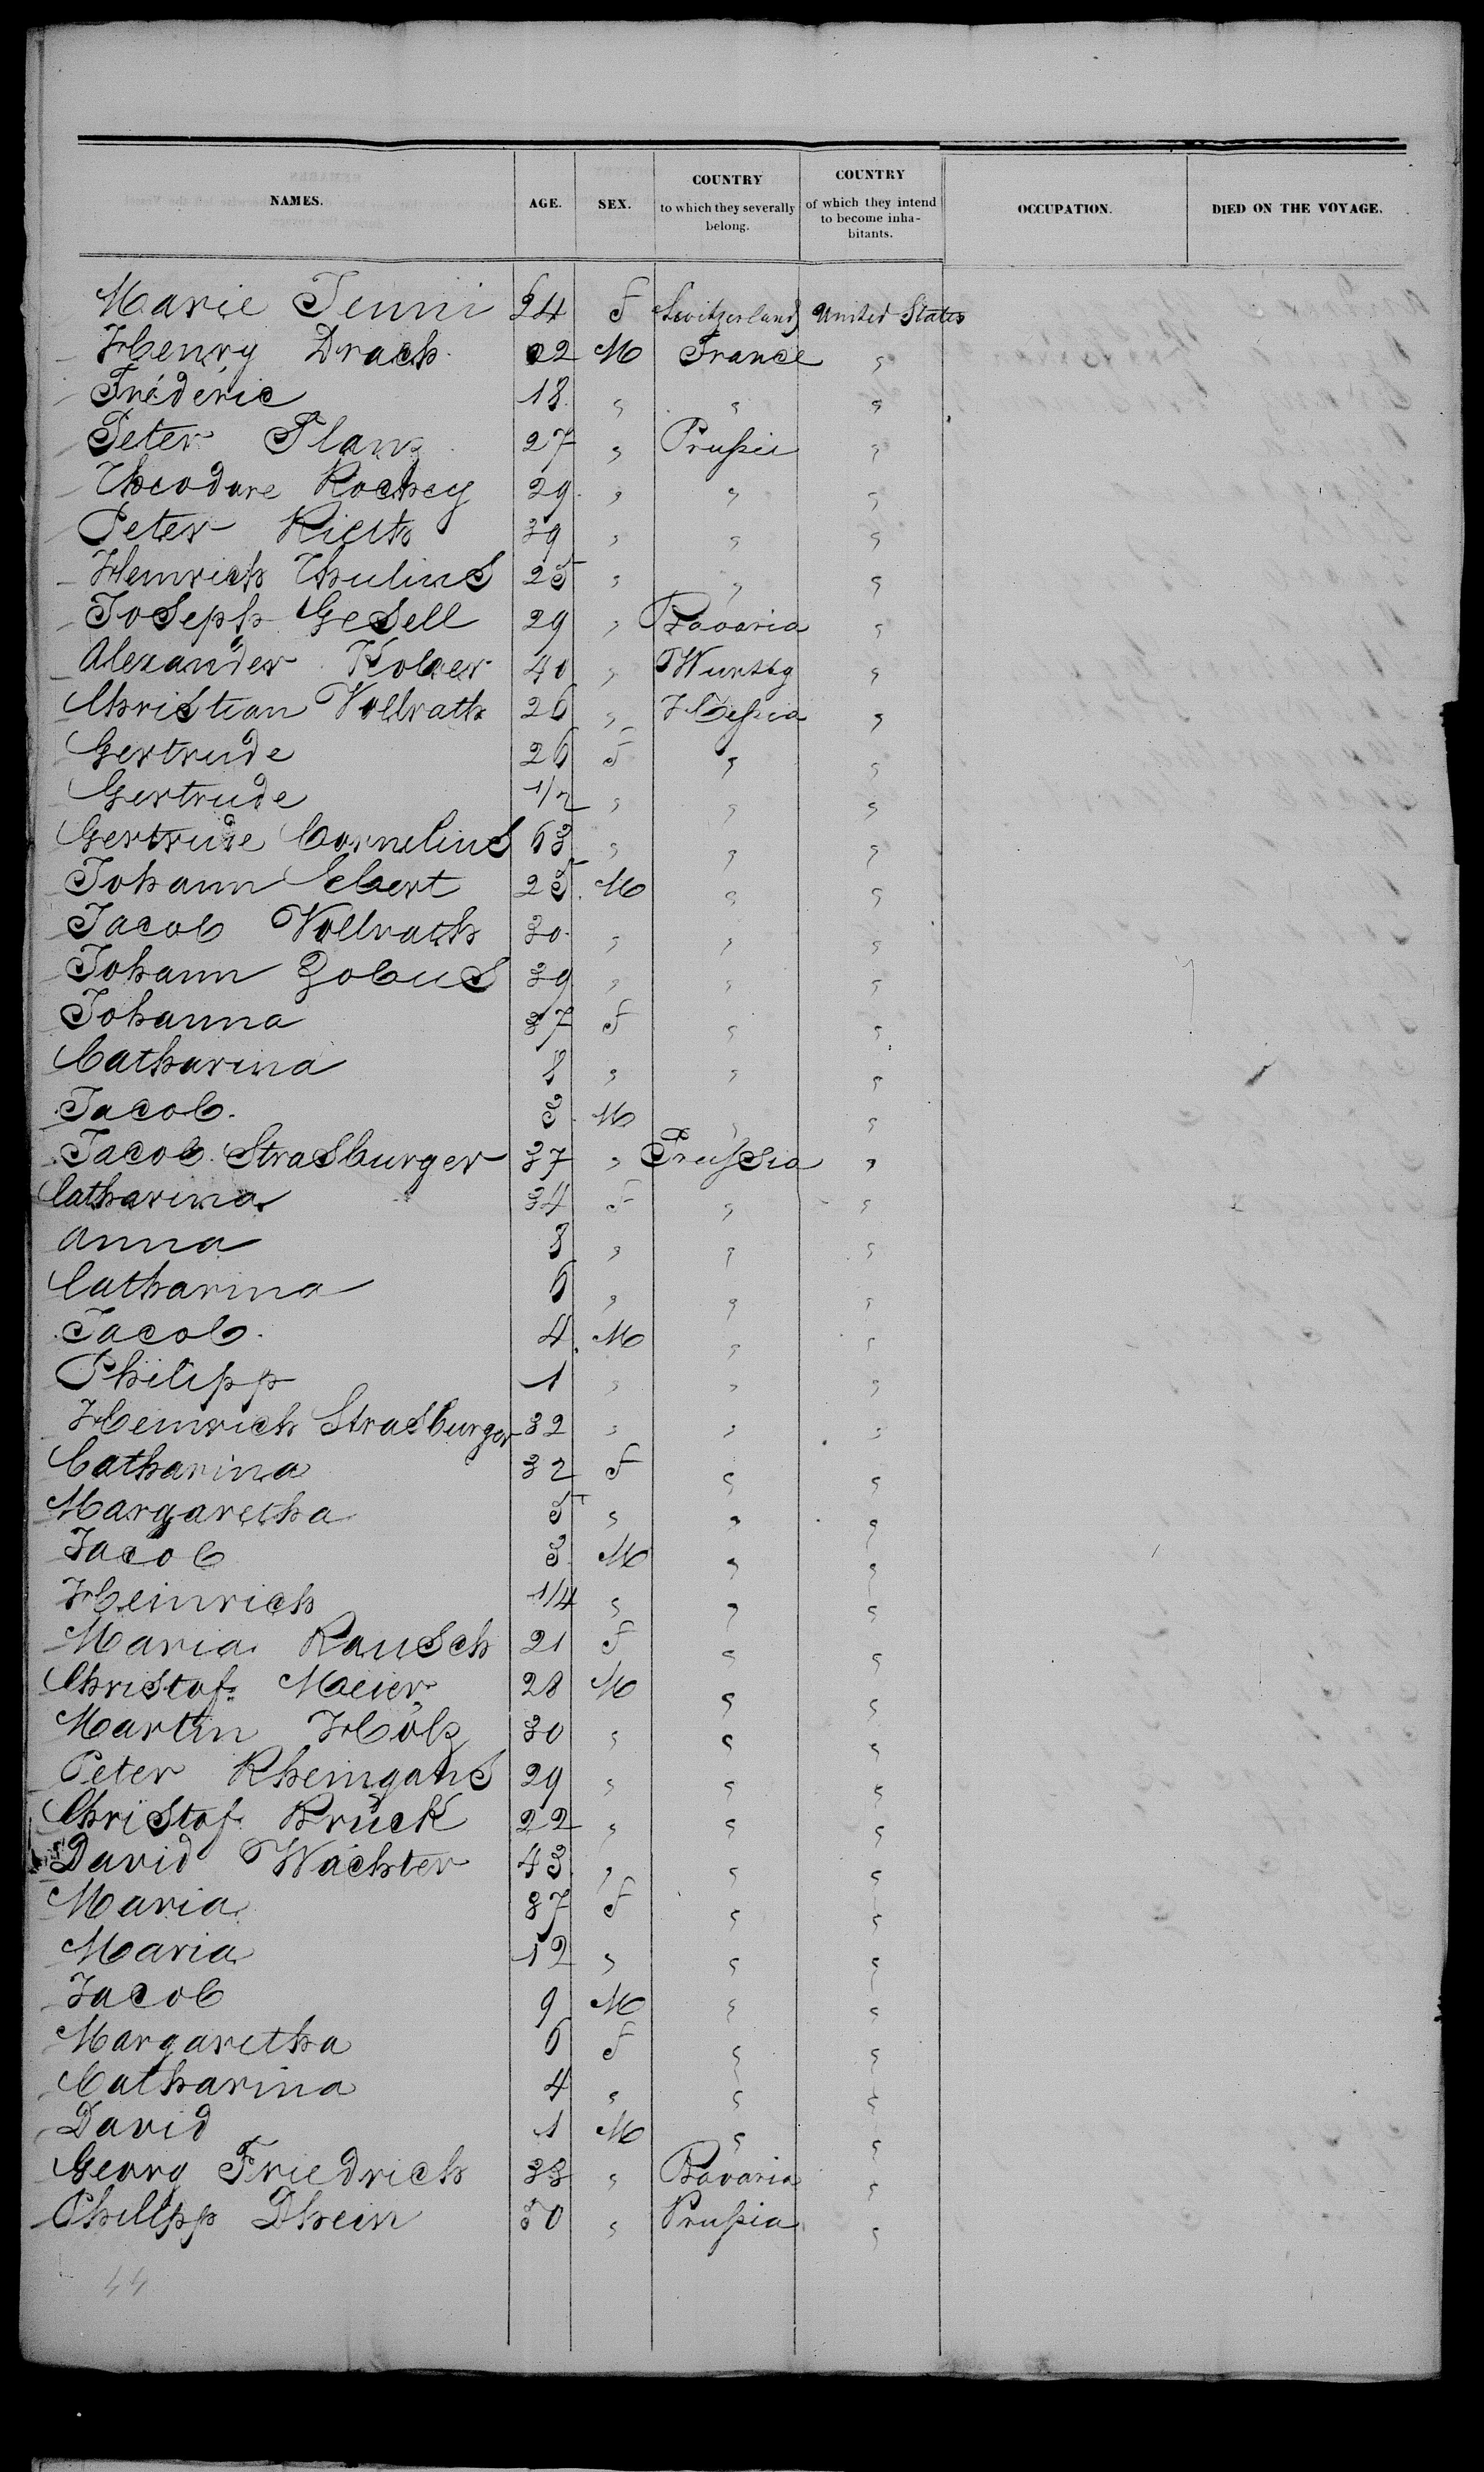 NAMES. AGE. SEX. COUNTRY to which they severally belong. COUNTRY of which they intend to become inhabitants. OCCUPATION. DIED ON THE VOYAGE.
Marie Jenni 24 F Switzerland United States
Henry Drach 22 M France "
Frédéric 18 " " "
Peter Planz 27 " Prussia "
Theodore Rochey 29 " " "
Peter Rieth 39 " " "
Heinrich Thulius 25 " " "
Joseph Gesell 29 " Bavaria "
Alexander Kolver 40 " Wurtbg "
Christian Vollrath 26 " Hessia "
Gertrude 26 F " "
Gertrude 1/2 " " "
Gertrude Cornelius 63 " " "
Johann Ebert 25 M " "
Jacob Vollrath 30 " " "
Johann Zobus 39 " " "
Johanna 37 F " "
Catharina 8 " " "
Jacob 3 M " "
Jacob Strasburger 37 " Prussia "
Catharina 34 F " "
Anna 8 " " "
Catharina 6 " " "
Jacob 4 M " "
Philipp 1 " " "
Heinrich Strasburger 32 " " "
Catharina 32 F " "
Margaretha 5 " " "
Jacob 3 M " "
Heinrich 1/4 " " "
Maria Rausch 21 F " "
Christof Meier 28 M " "
Martin Hölz 30 " " "
Peter Rheingans 29 " " "
Christof Brück 22 " " "
David Wächter 43 " " "
Maria 37 F " "
Maria 12 " " "
Jacob 9 M " "
Margaretha 6 F " "
Catharina 4 " " "
David 1 M " "
Georg Friedrich 33 " Bavaria "
Philipp Dhein 50 " Prussia "
44